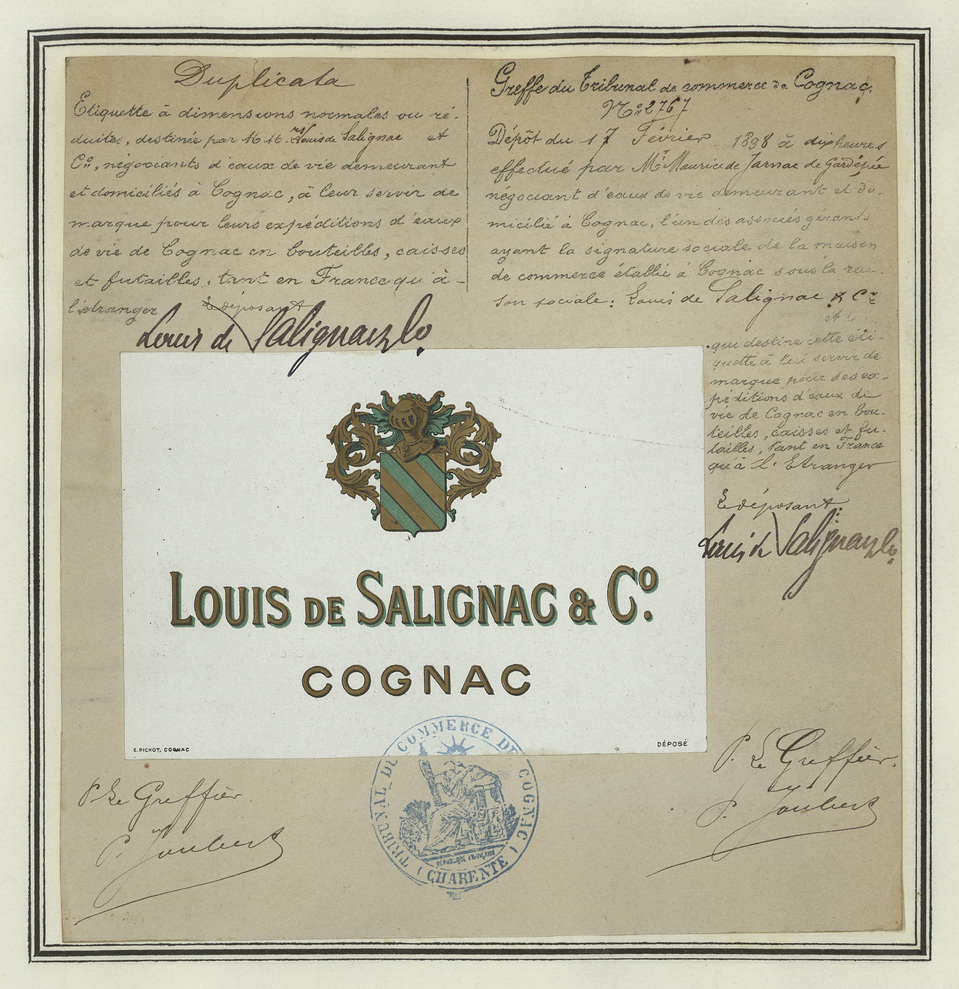 Duplicata
Etiquette à dimensions normales ou ré-
duites, destinée par M.M.rs Louis de Salignac et
Co, négociants d'eaux de vie demeurant
et domiciliés à Cognac, à leur servir de
marque pour leurs expéditions d'eaux
de vie de Cognac en bouteilles, caisses
et futailles, tant en France qu'à
l'étranger
Le déposant
Louis de Salignac & Co
Greffe du Tribunal de commerce de Cognac,
No 2767
Dépôt du 17 Février 1898 à dix heures
effectué par Mr Maurice de Jarnac de Gardépée
négociant d'eaux de vie demeurant et do-
micilié à Cognac, l'un des associés gérants
ayant la signature sociale de la maison
de commerce établie à Cognac sous la rai-
son sociale: Louis de Salignac & Cie
qui destine cette éti-
quette à lui servir de
marque pour ses ex-
péditions d'eaux de
vie de Cognac en bou-
teilles, caisses et fu-
tailles, tant en France
qu'à l'Etranger
Le déposant:
Louis de Salignac & Co
LOUIS DE SALIGNAC & Co.
COGNAC
E. PICHOT, COGNAC
DÉPOSÉ
TRIBUNAL DE COMMERCE DE COGNAC
(CHARENTE)
P. Le Greffier.
P. Joubert
P. Le Greffier.
P. Joubert